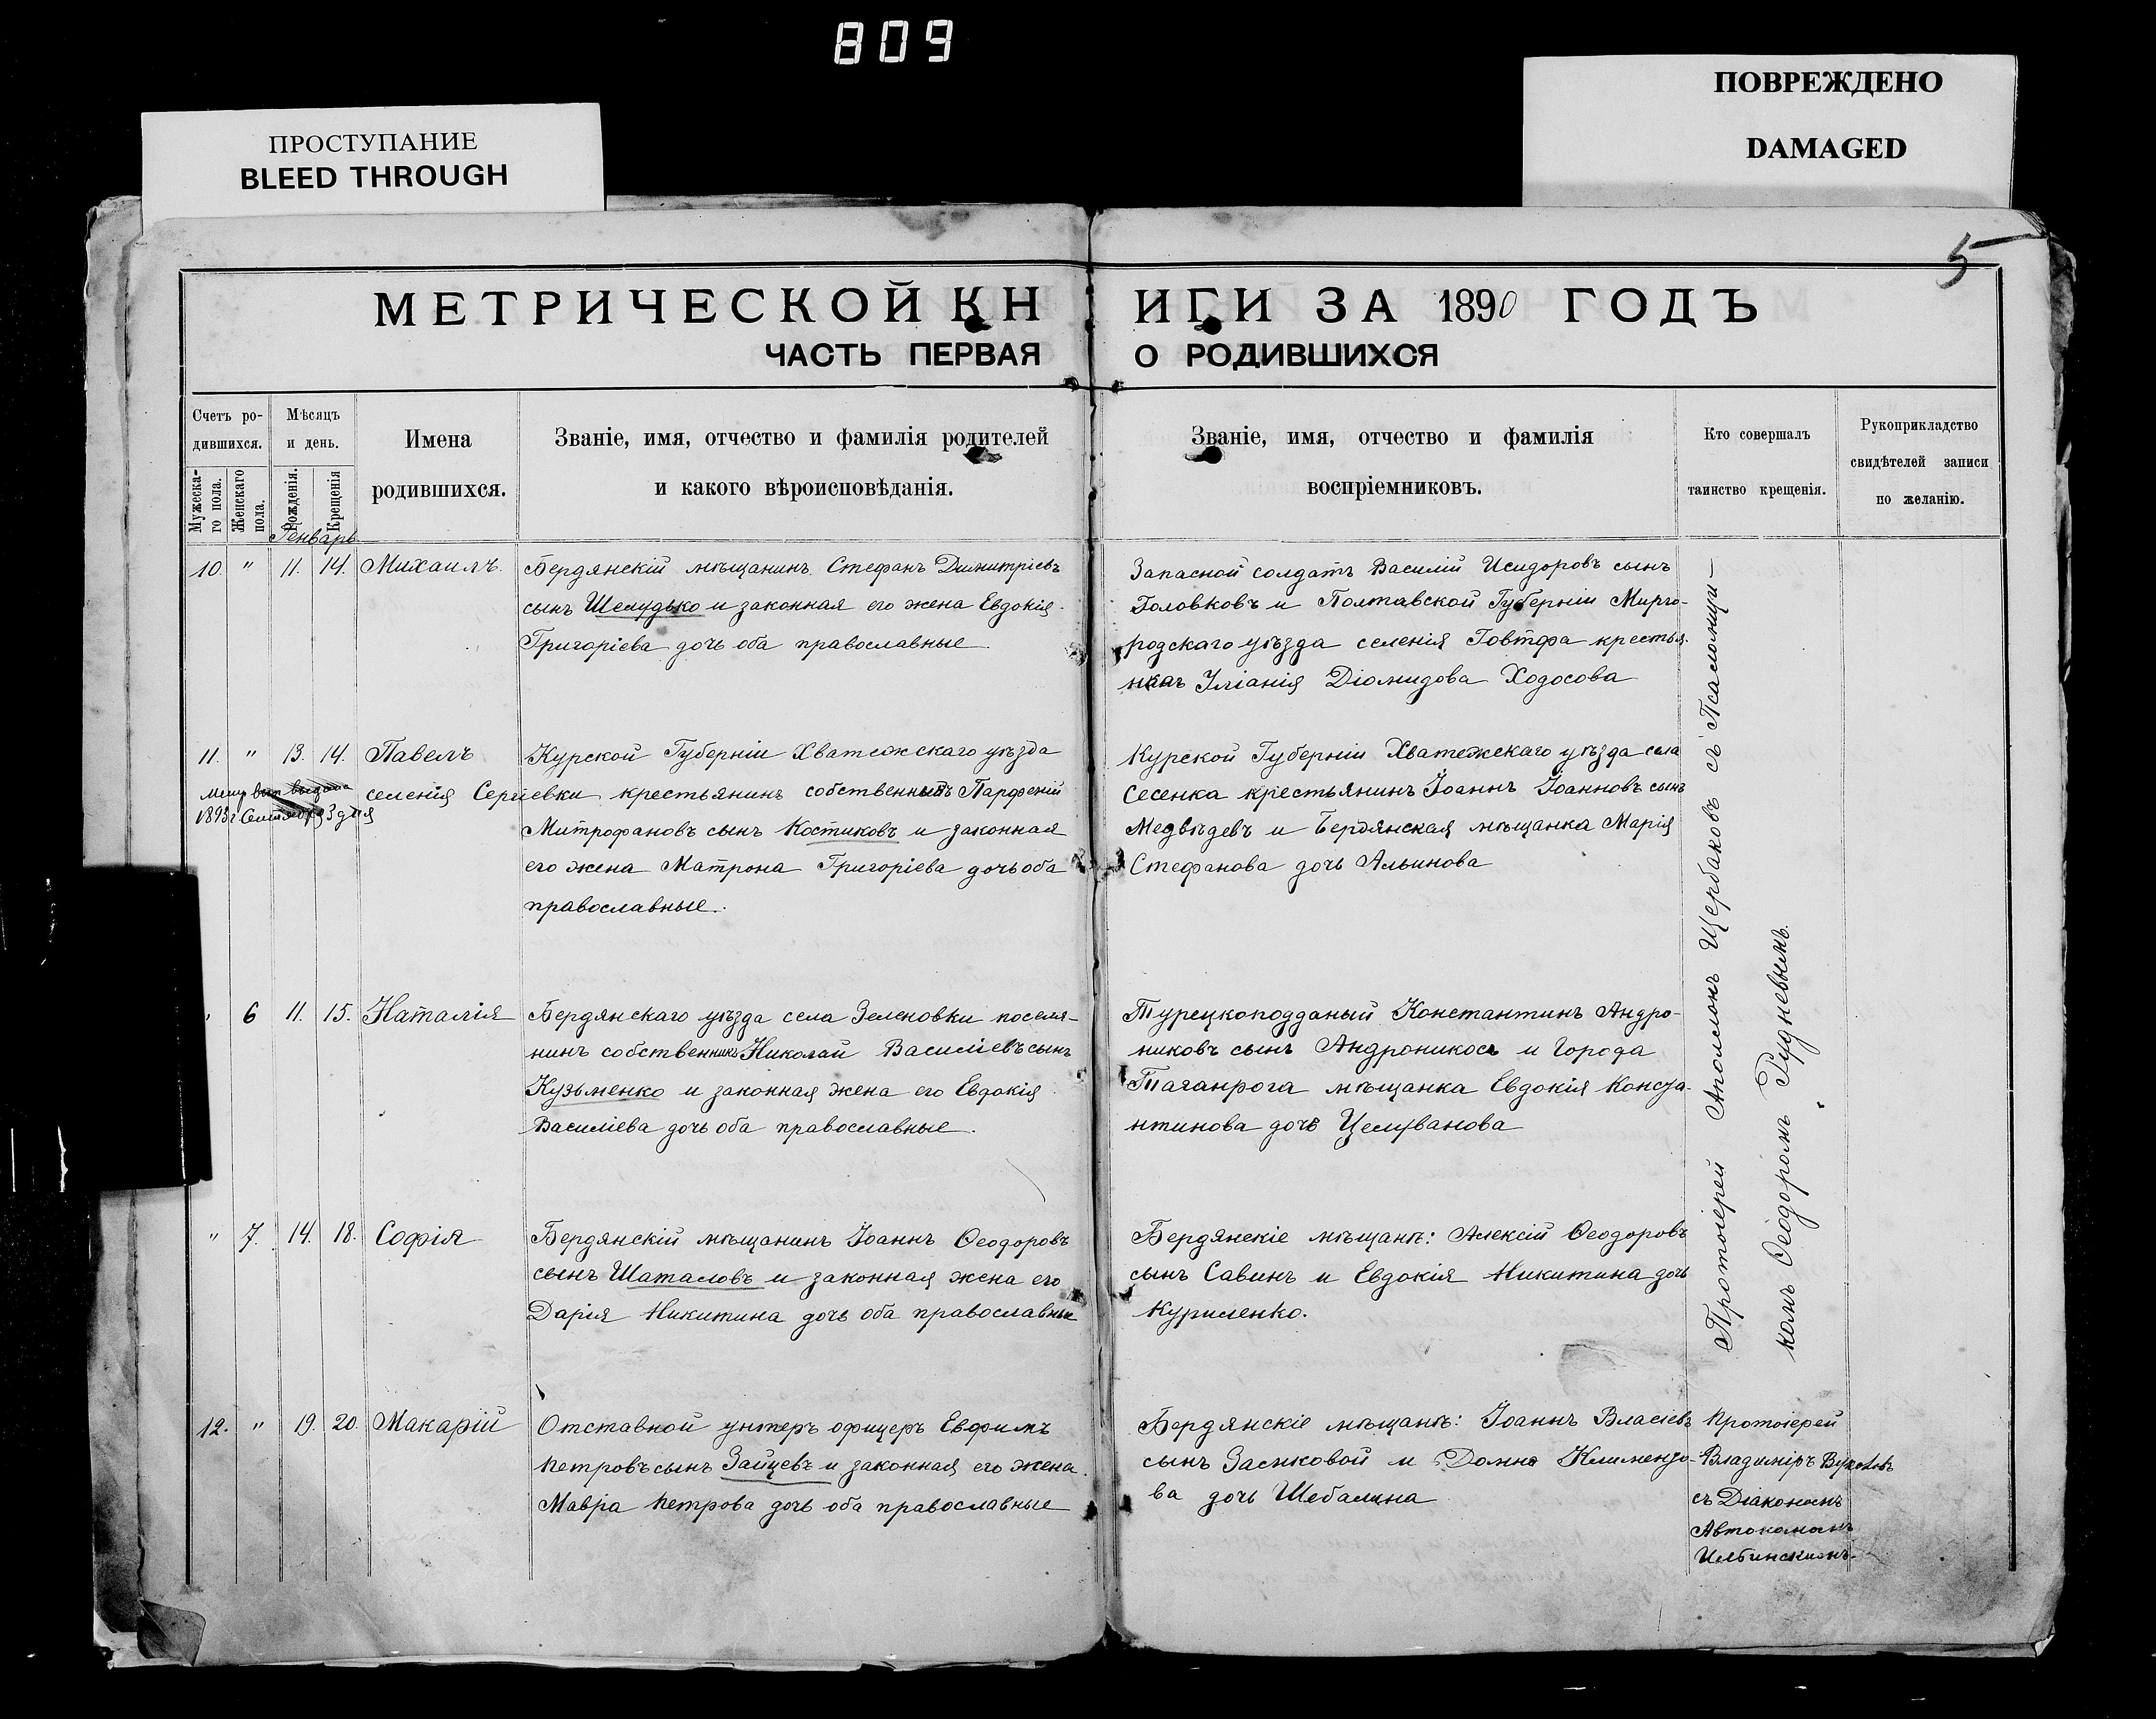 809
ПРОСТУПАНИЕ
BLEED THROUGH
ПОВРЕЖДЕНО
DAMAGED
5
МЕТРИЧЕСКОЙ КН
ИГИ ЗА 1890 ГОДЪ
ЧАСТЬ ПЕРВАЯ
О РОДИВШИХСЯ
Счетъ ро-
дившихся.
Мужеска-
го пола.
Женскаго
пола.
Мѣсяцъ
и день.
Рожденія.
Крещенія
Имена
родившихся.
Званіе, имя, отчество и фамилія родителей
и какого вѣроисповѣданія.
Званіе, имя, отчество и фамилія
воспріемниковъ.
Кто совершалъ
таинство крещенія.
Рукоприкладство
свидѣтелей записи
по желанію.
Генварь
10. " 11. 14. Михаилъ.
Бердянскій мѣщанинъ Стефанъ Димитріевъ
сынъ Шелудько и законная его жена Евдокія
Григоріева дочь оба православные
Запасной солдатъ Василій Исидоровъ сынъ
Головковъ и Полтавской Губерніи Мирго-
родскаго уѣзда селенія Говтфа крестья-
Іуліанія Діомидова Ходосова
11. " 13. 14. Павелъ
1893 г. 3 дня
Курской Губерніи Хватежскаго уѣзда
селенія Сергіевки крестьянинъ собственникъ Парфеній
Митрофановъ сынъ Костиковъ и законная
его жена Матрона Григоріева дочь оба
православные.
Курской Губерніи Хватежскаго уѣзда села
Сесенка крестьянинъ Іоаннъ Іоанновъ сынъ
Медвѣдевъ и Бердянская мѣщанка Марія
Стефанова дочь Альинова
" 6 11. 15. Наталія
Бердянскаго уѣзда села Зеленовки поселя-
нинъ собственникъ Николай Василіевъ сынъ
Кузьменко и законная жена его Евдокія
Василіева дочь оба православные.
Турецкоподданый Константинъ Андро-
никовъ сынъ Андроникосъ и Города
Таганрога мѣщанка Евдокія Конста-
нтинова дочь Целиванова
" 7. 14. 18. Софія
Бердянскій мѣщанинъ Іоаннъ Ѳеодоровъ
сынъ Шаталовъ и законная жена его
Дарія Никитина дочь оба православные
Бердянскіе мѣщане: Алексій Ѳеодоровъ
сынъ Савинъ и Евдокія Никитина дочь
Куриленко.
Протоіерей Аполлонъ Щербаковъ съ Псаломщи-
комъ Ѳеодоромъ Рудневымъ.
12. " 19. 20. Макарій
Отставной унтеръ офицеръ Евфимъ
Петровъ сынъ Зайцевъ и законная его жена
Мавра Петрова дочь оба православные
Бердянскіе мѣщане: Іоаннъ Власіевъ
сынъ Засиковой и Домна Климентьо-
ва дочь Шебалина
Протоіерей
Владиміръ
съ Діакономъ
Автономомъ